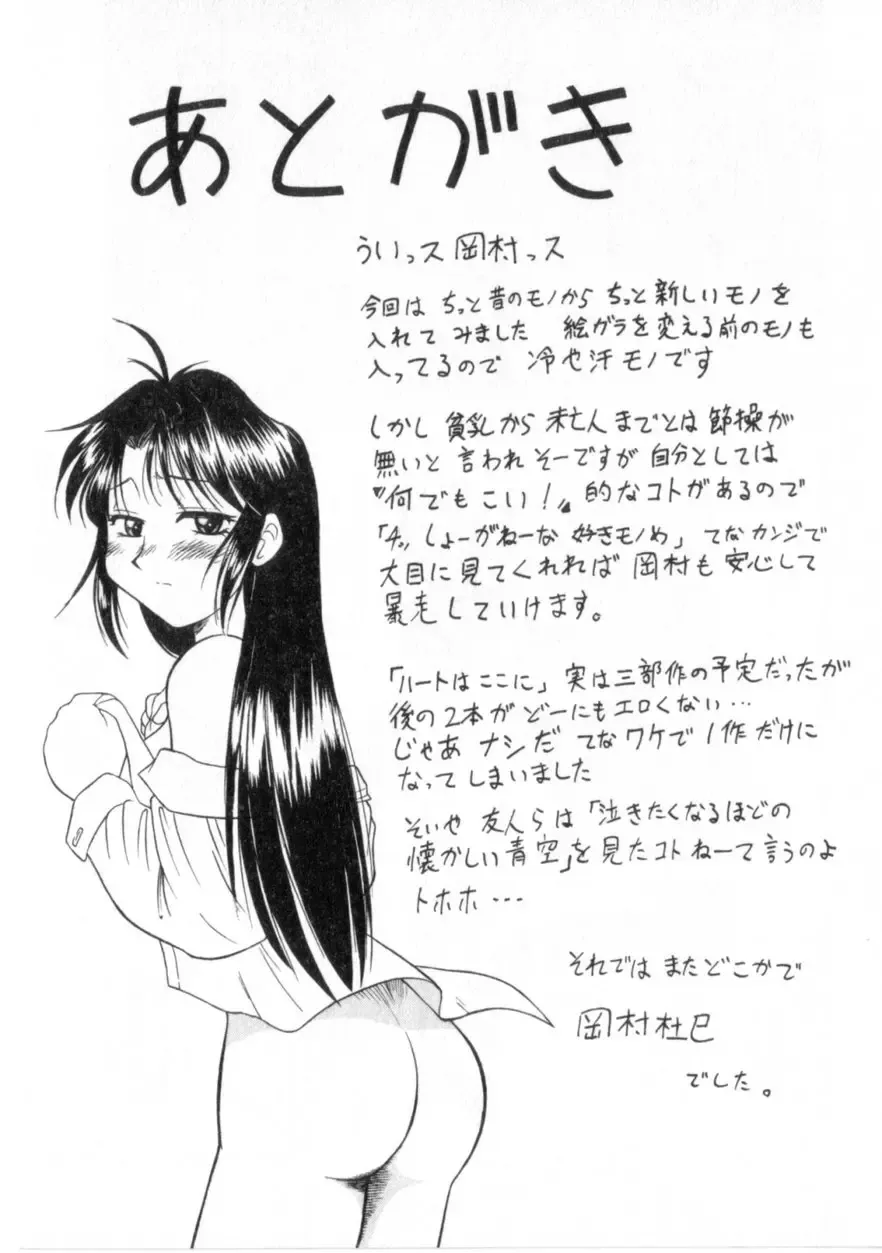 あとがき
ういっス岡村っス
今回は ちっと昔のモノから ちっと新しいモノを
入れて みました 絵ガラを変える前のモノも
入ってるので 冷や汗モノです
しかし 貧乳から 未亡人までとは 節操が
無いと 言われそーですが 自分としては
〝何でもこい!〟的なコトがあるので
「チッ しょーがねーな 好きモノめ」 てなカンジで
大目に見てくれれば 岡村も 安心して
暴走していけます。
「ハートはここに」 実は三部作の予定だったが
後の2本がどーにもエロくない…
じゃあ ナシだ てなワケで 1作だけに
なってしまいました
そいや 友人らは「泣きたくなるほどの
懐かしい青空」を見たコトねーて言うのよ
トホホ…
それでは またどこかで
岡村杜巳
でした。